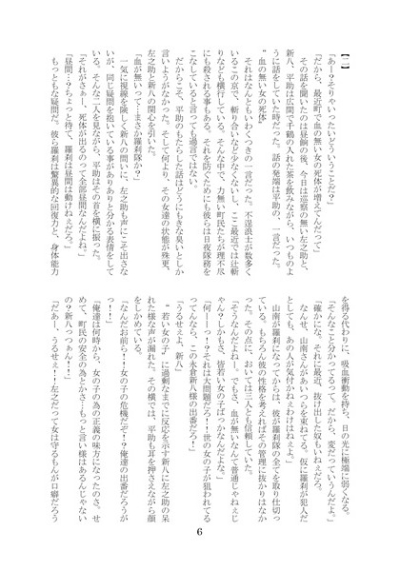 【二】
「あー?そりゃいったいどういうことだ?」
「だから、最近町で血の無い女の死体が増えてんだって」
その話を聞いたのは昼餉の後、今日は巡察の無い左之助と、
新八、平助は広間で千鶴の入れた茶を飲みながら、いつものよ
うに話をしていた時だった。話の発端は平助の、一言だった。
"血の無い女の死体"
それはなんともいわくつきの一言だった。不逞浪士が数多く
いるこの京で、斬り合いなど少なくないし、ここ最近では辻斬
りなども横行している。そんな中で、力無い町民たちが理不尽
にも殺される事もある。それを防ぐためにも彼らは日夜隊務を
こなしていると言っても過言ではない。
だからこそ、平助のもたらした話はどうにもきな臭いとしか
言いようがなかった。そして何より、その女達の状態が殊更、
左之助と新八の関心を引いた。
「血が無いって…まさか羅刹隊か?」
一気に視線を険しく新八の問いに、左之助も声にこそ出さな
いが、同じ疑問を抱いている事がありありと分かる表情をして
いる。そんな二人を見ながら、平助はその首を横に振った。
「それがさぁー、死体が出るのって全部昼間なんだよね。」
「昼間…?ちょっと待て、羅刹は昼間は動けねぇだろ。」
もっともな疑問だ。彼ら羅刹は驚異的な回復力と、身体能力
を得る代わりに、吸血衝動を持ち、日の光に極端に弱くなる。
「そんなこと分かってるって。だから、変だっていうんだよ」
「確かにな、それに最近、抜け出した奴もいねぇだろ。
なんせ、山南さんがあいつらを束ねてる。仮に羅刹が犯人だ
としても、あの人が気付かねぇわけはねぇよ。」
山南が羅刹になってからは、彼が羅刹隊の全てを取り仕切っ
ている。もちろん彼の性格を考えればその管理に抜かりはなか
った。その点に、おいては三人とも信頼していた。
「そうなんだよねー。でもさ、血が無いなんて普通じゃねぇじ
ゃん?しかもさ、皆若い女の子ばっかなんだよな。」
「何ーーっ!?それは大問題だろ!!世の女の子が狙われてる
ってんなら、この永倉新八様の出番だろ!」
「うるせぇよ、新八」
"若い女の子"に過剰なまでに反応を示す新八に左之助の呆
れた様な声が漏れた。その横では、平助も耳を押さえながら顔
をしかめている。
「なんだお前ら!!女の子の危機だぞ!?俺達の出番だろうが
っ!!」
「俺達は何時から、女の子の為の正義の味方になったのさ、せ
めて、町民の安全の為とかさーもっと言い様はあるんじゃない
の?新八っつぁん!!」
「だあー、うるせぇ!!左之だって女は守るもんが口癖だろう
6